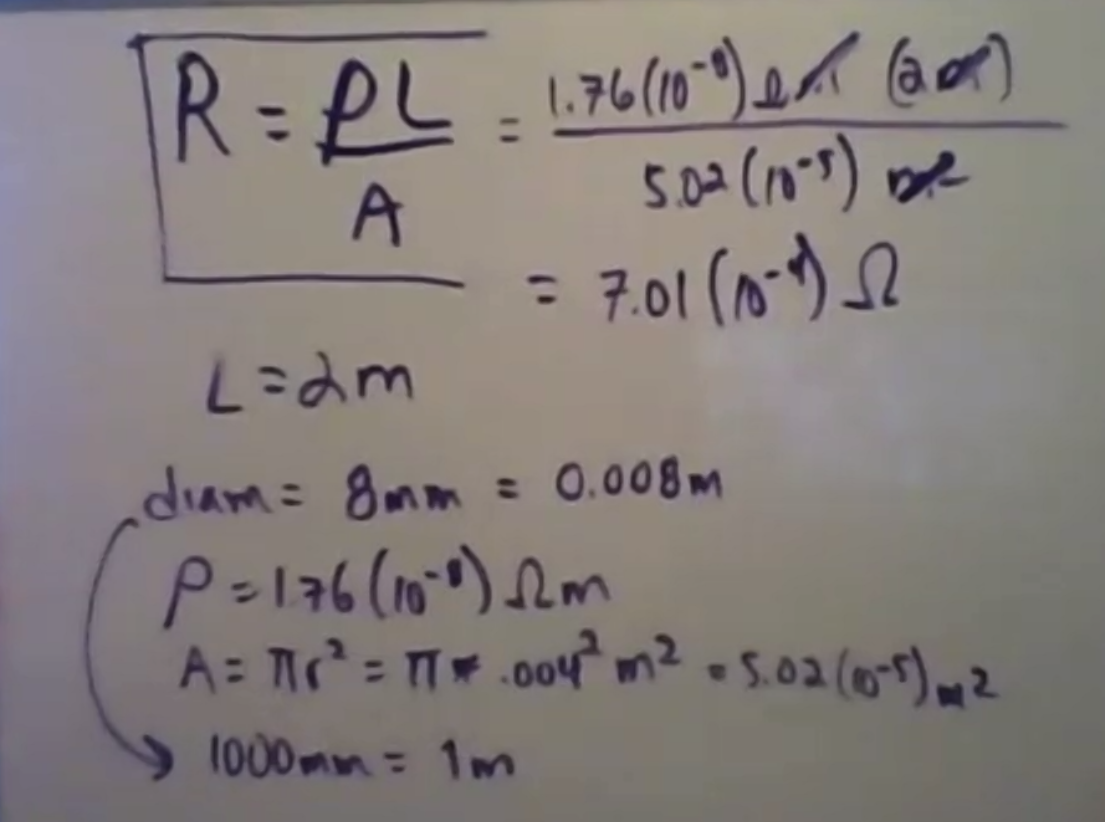 R = ρL/A = 1.76(10⁻⁸) Ωm (2m) / 5.02(10⁻⁵) m²
= 7.01(10⁻⁴) Ω
L = 2m
diam = 8mm = 0.008m
ρ = 1.76(10⁻⁸) Ωm
A = πr² = π * .004² m² = 5.02(10⁻⁵) m²
1000mm = 1m